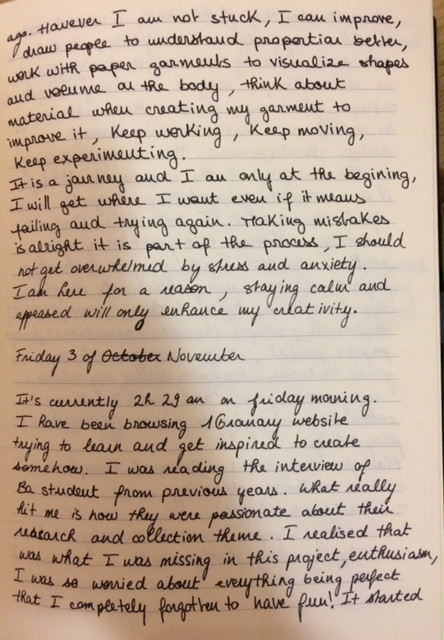 ago. However I am not stuck, I can improve,
draw people to understand proportion better,
work with paper garments to visualize shapes
and volume on the body, think about
material when creating my garment to
improve it, Keep working, Keep moving,
Keep experimenting.
It is a journey and I am only at the begining,
I will get where I want even if it means
failing and trying again. Making mistakes
is alright it is part of the process, I should
not get overwhelmed by stress and anxiety.
I am here for a reason, staying calm and
appeased will only enhance my creativity.
Friday 3 of October November
It's currently 2h 29 am on friday morning.
I have been browsing 1Granary website
trying to learn and get inspired to create
somehow. I was reading the interview of
Ba student from previous years. What really
hit me is how they were passionate about their
research and collection theme. I realised that
was what I was missing in this project, enthusiasm,
I was so worried about everything being perfect
that I completely forgotten to have fun! It started